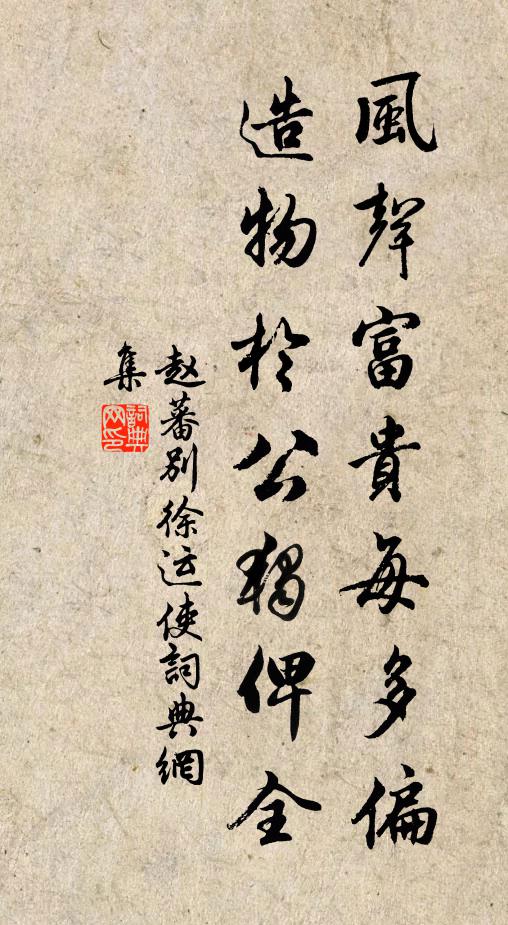 風聲富貴每多偏
造物於公獨俾全
赵蕃别徐运使詞典網
集
詞典网印